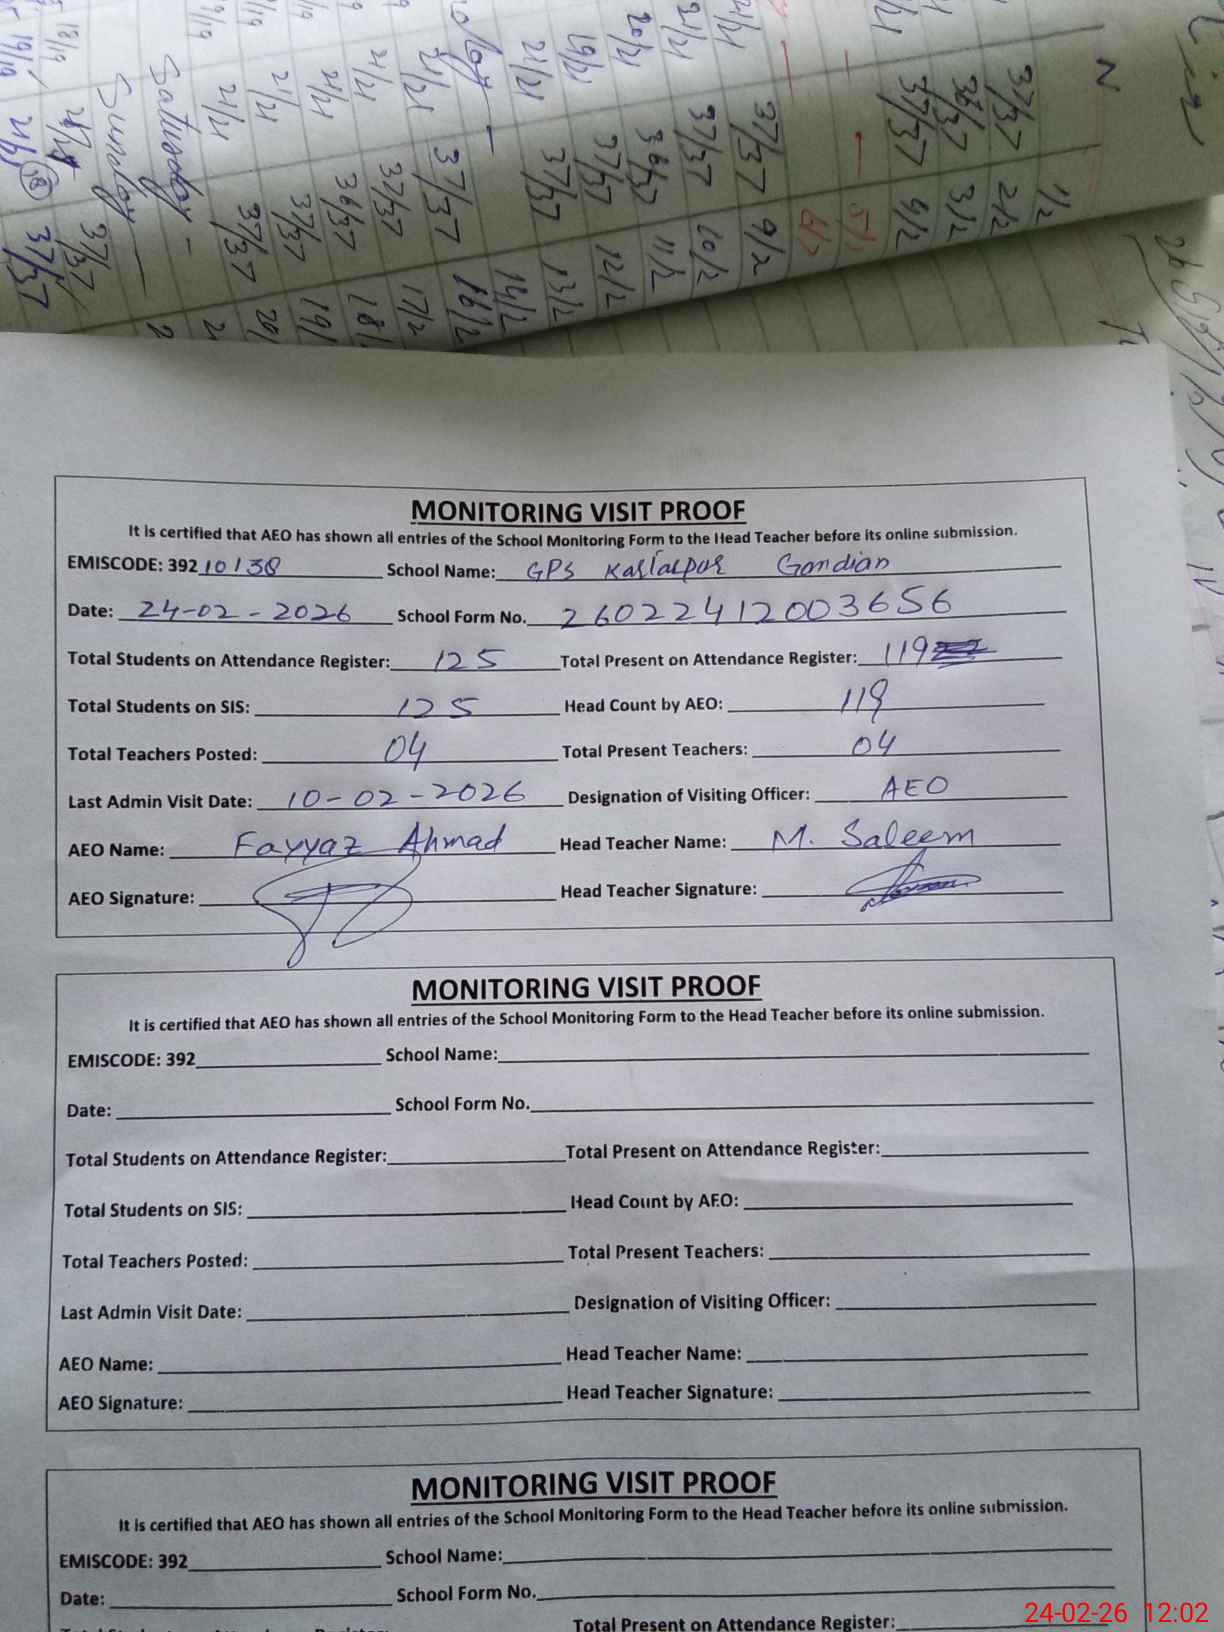 N
37/37 1/2
36/37 2/2
37/37 3/2
4/2
5/2
6/2
37/37 9/2
21/21 37/37 10/2
20/21 36/37 11/2
19/21 37/37 12/2
21/21 37/37 13/2
14/2
21/21 37/37 16/2
21/21 37/37 17/2
21/21 36/37 18/
21/21 37/37 19/
21/21 37/37 20/
Saturday -
Sunday —
18/19 37/37
19/19 18 37/37
MONITORING VISIT PROOF
It is certified that AEO has shown all entries of the School Monitoring Form to the Head Teacher before its online submission.
EMISCODE: 392 10138 School Name: GPS Gondian
Date: 24-02-2026 School Form No. 26022412003656
Total Students on Attendance Register: 125 Total Present on Attendance Register: 119
Total Students on SIS: 125 Head Count by AEO: 119
Total Teachers Posted: 04 Total Present Teachers: 04
Last Admin Visit Date: 10-02-2026 Designation of Visiting Officer: AEO
AEO Name: Fayyaz Ahmad Head Teacher Name: M. Saleem
AEO Signature: Head Teacher Signature:
MONITORING VISIT PROOF
It is certified that AEO has shown all entries of the School Monitoring Form to the Head Teacher before its online submission.
EMISCODE: 392 School Name:
Date: School Form No.
Total Students on Attendance Register: Total Present on Attendance Register:
Total Students on SIS: Head Count by AEO:
Total Teachers Posted: Total Present Teachers:
Last Admin Visit Date: Designation of Visiting Officer:
AEO Name: Head Teacher Name:
AEO Signature: Head Teacher Signature:
MONITORING VISIT PROOF
It is certified that AEO has shown all entries of the School Monitoring Form to the Head Teacher before its online submission.
EMISCODE: 392 School Name:
Date: School Form No.
Total Present on Attendance Register:
24-02-26 12:02